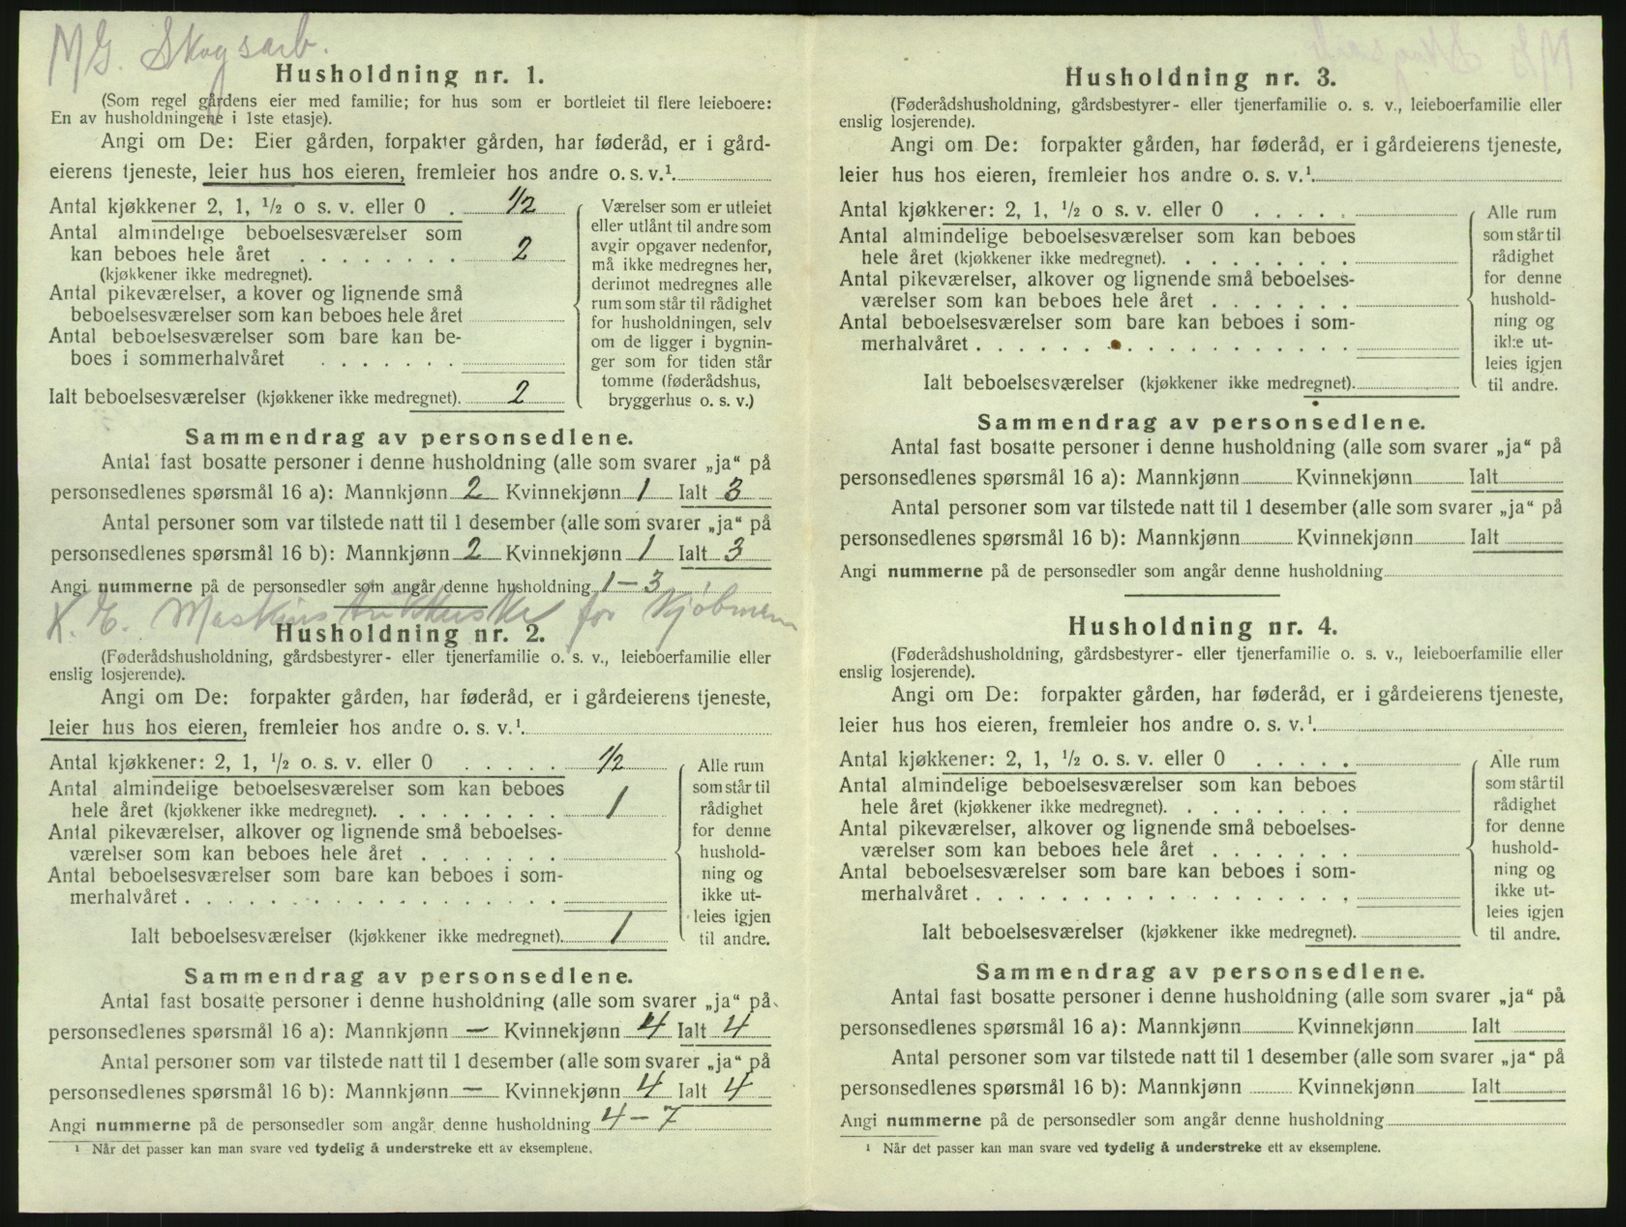 MG. Skogsarb.
Husholdning nr. 1.
(Som regel gårdens eier med familie; for hus som er bortleiet til flere leieboere:
En av husholdningene i 1ste etasje).
Angi om De: Eier gården, forpakter gården, har føderåd, er i gård-
eierens tjeneste, leier hus hos eieren, fremleier hos andre o. s. v.¹.
Antal kjøkkener 2, 1, ½ o s. v. eller 0 . 1/2
Antal almindelige beboelsesværelser som
kan beboes hele året . . . . . . . . 2
(kjøkkener ikke medregnet).
Antal pikeværelser, a kover og lignende små
beboelsesværelser som kan beboes hele året
Antal beboelsesværelser som bare kan be-
boes i sommerhalvåret . . . . . . .
Ialt beboelsesværelser (kjøkkener ikke medregnet). 2
Værelser som er utleiet
eller utlånt til andre som
avgir opgaver nedenfor,
må ikke medregnes her,
derimot medregnes alle
rum som står til rådighet
for husholdningen, selv
om de ligger i bygnin-
ger som for tiden står
tomme (føderådshus,
bryggerhus o. s. v.)
Sammendrag av personsedlene.
Antal fast bosatte personer i denne husholdning (alle som svarer „ja“ på
personsedlenes spørsmål 16 a): Mannkjønn 2 Kvinnekjønn 1 Ialt 3
Antal personer som var tilstede natt til 1 desember (alle som svarer „ja“ på
personsedlenes spørsmål 16 b): Mannkjønn 2 Kvinnekjønn 1 Ialt 3
Angi nummerne på de personsedler som angår denne husholdning 1 – 3
for Kjøbmenn
Husholdning nr. 2.
(Føderådshusholdning, gårdsbestyrer- eller tjenerfamilie o. s. v., leieboerfamilie eller
enslig losjerende).
Angi om De: forpakter gården, har føderåd, er i gårdeierens tjeneste,
leier hus hos eieren, fremleier hos andre o. s. v.¹.
Antal kjøkkener: 2, 1, ½ o. s. v. eller 0 . . . . . 1/2
Antal almindelige beboelsesværelser som kan beboes
hele året (kjøkkener ikke medregnet). . . . . . . . . 1
Antal pikeværelser, alkover og lignende små beboelses-
værelser som kan beboes hele året . . . . . . .
Antal beboelsesværelser som bare kan beboes i som-
merhalvåret . . . . . . . . . . . . . . . . . .
Ialt beboelsesværelser (kjøkkener ikke medregnet). 1
Alle rum
som står til
rådighet
for denne
hushold-
ning og
ikke ut-
leies igjen
til andre.
Sammendrag av personsedlene.
Antal fast bosatte personer i denne husholdning (alle som svarer „ja“ på
personsedlenes spørsmål 16 a): Mannkjønn — Kvinnekjønn 4 Ialt 4
Antal personer som var tilstede natt til 1 desember (alle som svarer „ja“ på
personsedlenes spørsmål 16 b): Mannkjønn — Kvinnekjønn 4 Ialt 4
Angi nummerne på de personsedler som angår denne husholdning 4 – 7
¹ Når det passer kan man svare ved tydelig å understreke ett av eksemplene.
Husholdning nr. 3.
(Føderådshusholdning, gårdsbestyrer- eller tjenerfamilie o. s. v., leieboerfamilie eller
enslig losjerende).
Angi om De: forpakter gården, har føderåd, er i gårdeierens tjeneste,
leier hus hos eieren, fremleier hos andre o. s. v.¹.
Antal kjøkkener: 2, 1, ½ o s. v. eller 0 . . . . .
Antal almindelige beboelsesværelser som kan beboes
hele året (kjøkkener ikke medregnet). . . . . . . . .
Antal pikeværelser, alkover og lignende små beboelses-
værelser som kan beboes hele året . . . . . . .
Antal beboelsesværelser som bare kan beboes i som-
merhalvåret . . . . . . . . . . . . . . . . . .
Ialt beboelsesværelser (kjøkkener ikke medregnet).
Alle rum
som står til
rådighet
for denne
hushold-
ning og
ikl:e ut-
leies igjen
til andre.
Sammendrag av personsedlene.
Antal fast bosatte personer i denne husholdning (alle som svarer „ja“ på
personsedlenes spørsmål 16 a): Mannkjønn Kvinnekjønn Ialt
Antal personer som var tilstede natt til 1 desember (alle som svarer „ja“ på
personsedlenes spørsmål 16 b): Mannkjønn Kvinnekjønn Ialt
Angi nummerne på de personsedler som angår denne husholdning
Husholdning nr. 4.
(Føderådshusholdning, gårdsbestyrer- eller tjenerfamilie o. s. v., leieboerfamilie eller
enslig losjerende).
Angi om De: forpakter gården, har føderåd, er i gårdeierens tjeneste,
leier hus hos eieren, fremleier hos andre o. s. v.¹.
Antal kjøkkener: 2, 1, ½ o. s. v. eller 0 . . . . .
Antal almindelige beboelsesværelser som kan beboes
hele året (kjøkkener ikke medregnet). . . . . . . . .
Antal pikeværelser, alkover og lignende små beboelses-
værelser som kan beboes hele året . . . . . . .
Antal beboelsesværelser som bare kan beboes i som-
merhalvåret . . . . . . . . . . . . . . . . . .
Ialt beboelsesværelser (kjøkkener ikke medregnet).
Alle rum
som står til
rådighet
for denne
hushold-
ning og
ikke ut-
leies igjen
til andre.
Sammendrag av personsedlene.
Antal fast bosatte personer i denne husholdning (alle som svarer „ja“ på
personsedlenes spørsmål 16 a): Mannkjønn Kvinnekjønn Ialt
Antal personer som var tilstede natt til 1 desember (alle som svarer „ja“ på
personsedlenes spørsmål 16 b): Mannkjønn Kvinnekjønn Ialt
Angi nummerne på de personsedler som angår denne husholdning
¹ Når det passer kan man svare ved tydelig å understreke ett av eksemplene.